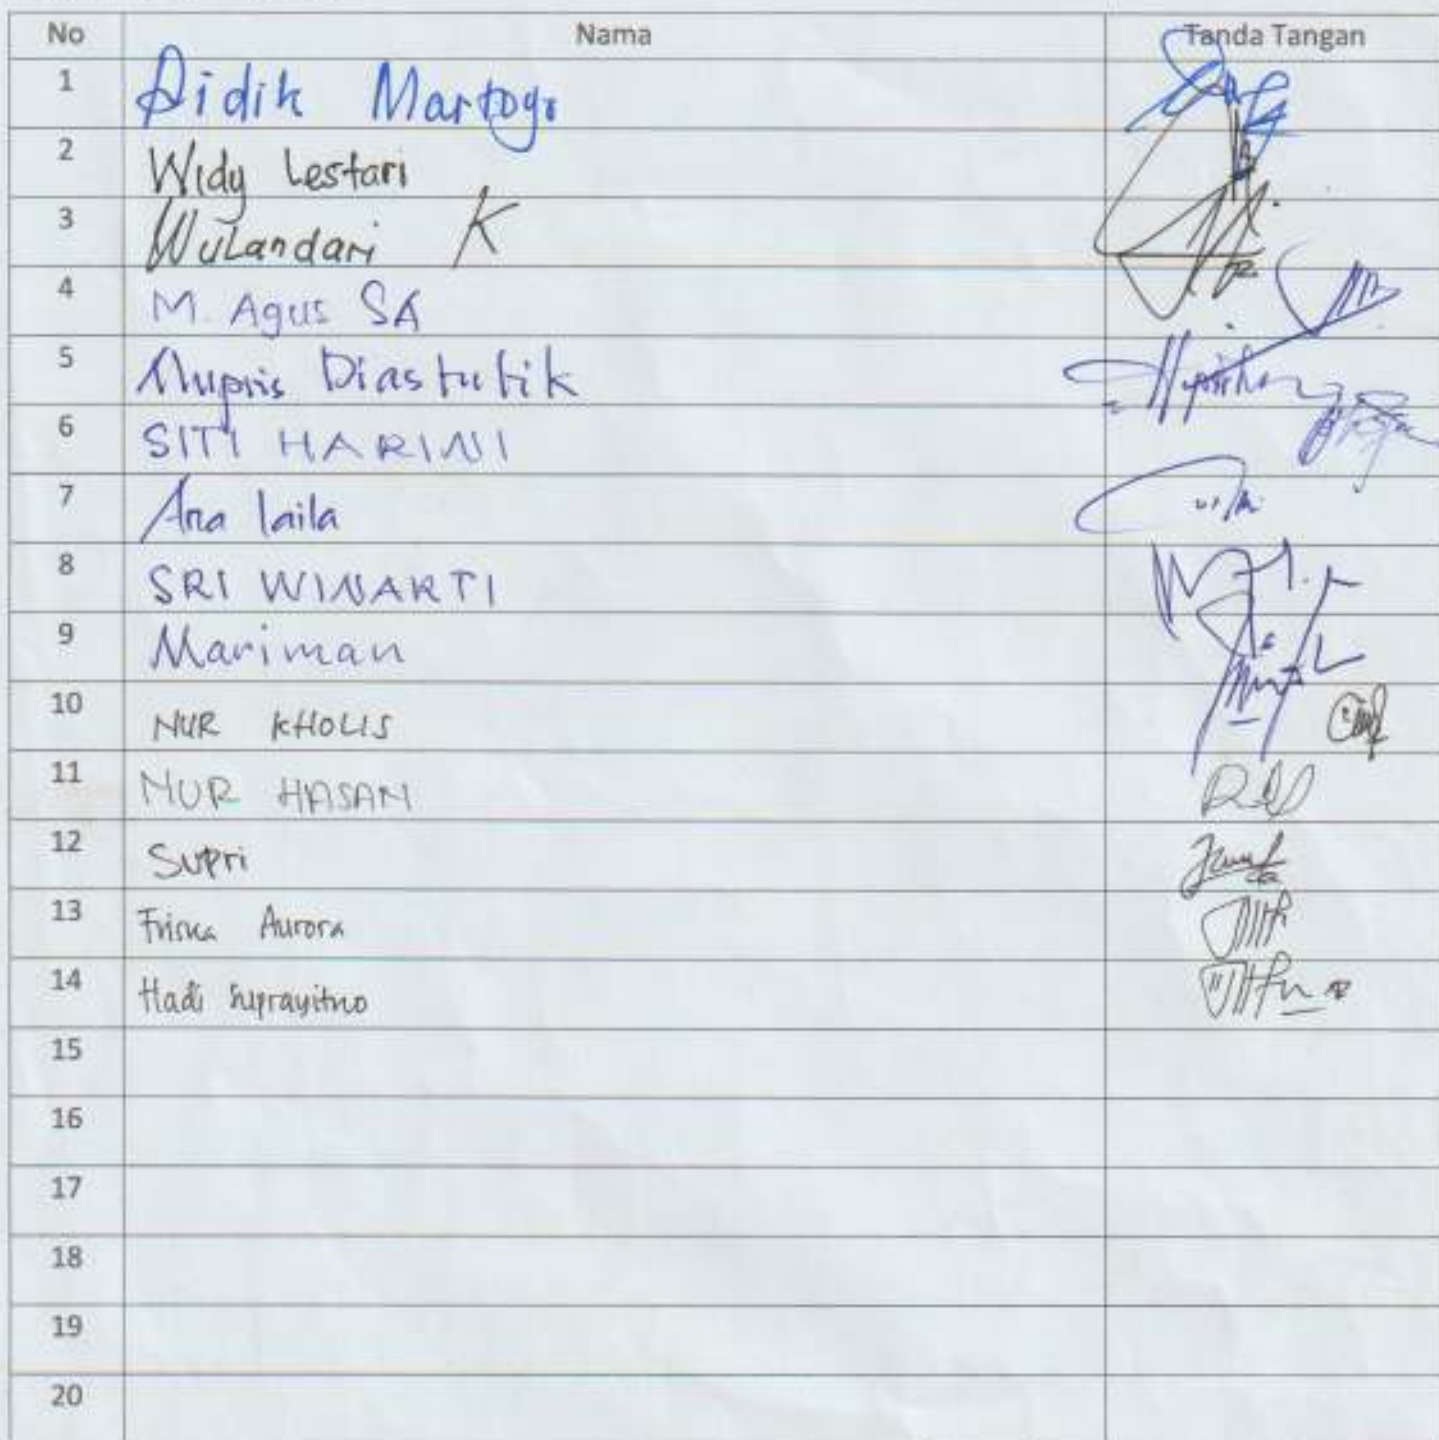 No Nama Tanda Tangan
1 Didik Martoyo
2 Widy Lestari
3 Wulandari K
4 M. Agus SA
5 Mupris Diastutik
6 SITI HARINI
7 Ana laila
8 SRI WINARTI
9 Mariman
10 NUR KHOLIS
11 NUR HASAN
12 Supri
13 Friska Aurora
14 Hadi Suprayitno
15
16
17
18
19
20